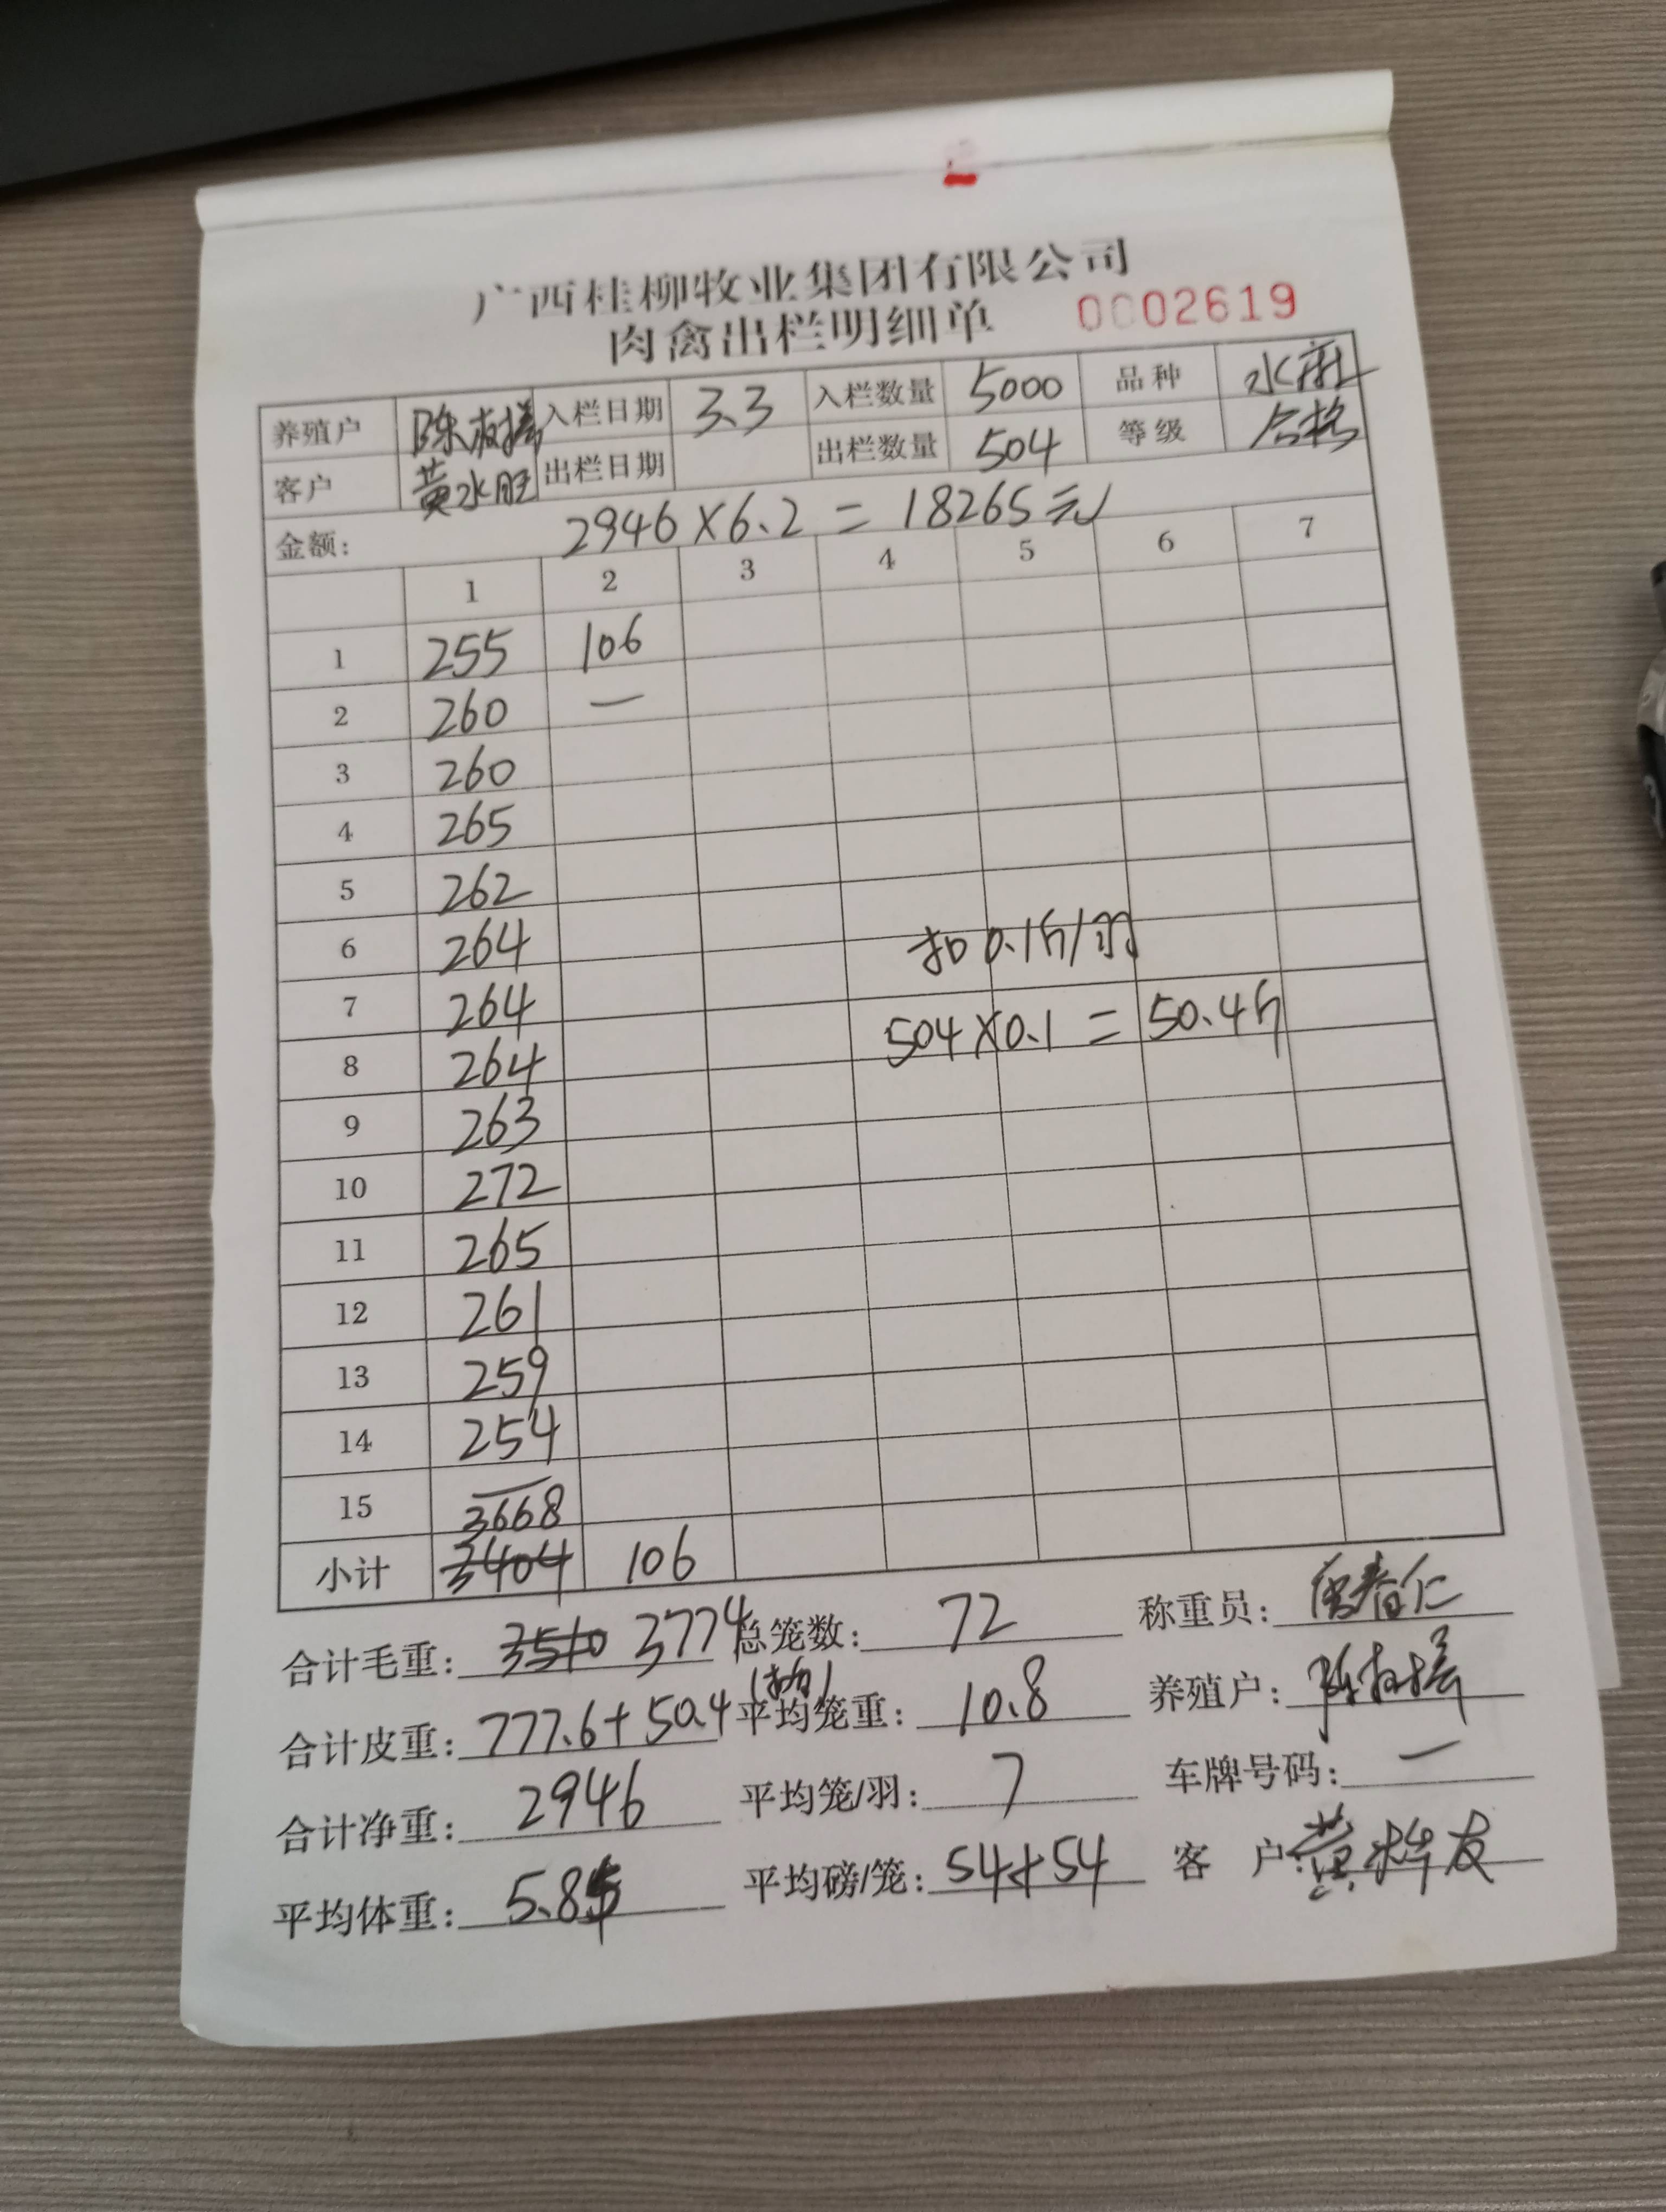 广西桂柳牧业集团有限公司
肉禽出栏明细单 0002619
养殖户 陈 入栏日期 3.3 入栏数量 5000 品种 水
客户 黄水旺 出栏日期 出栏数量 504 等级 合格
金额: 2946×6.2=18265元
1 2 3 4 5 6 7
1 255 106
2 260 一
3 260
4 265
5 262
6 264 扣0.1斤/羽
7 264 504×0.1=50.4斤
8 264
9 263
10 272
11 265
12 261
13 259
14 254
15 3668
小计 3404 106
合计毛重: 3510 3774 总笼数: 72 称重员: 春仁
合计皮重: 777.6+50.4 (扣) 平均笼重: 10.8 养殖户: 陈
合计净重: 2946 平均笼/羽: 7 车牌号码: 一
平均体重: 5.85 平均磅/笼: 54+54 客 户: 黄